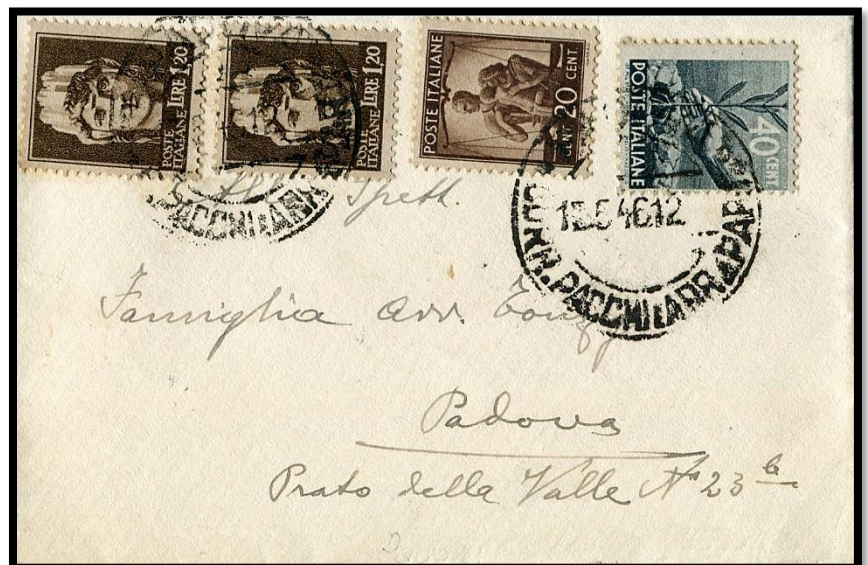 POSTE ITALIANE LIRE 1,20
POSTE ITALIANE LIRE 1,20
POSTE ITALIANE
CENT 20 CENT
POSTE ITALIANE
40 CENT
PACCHI
PACCHI
Spett.
Famiglia Avv.
Padova
Prato della Valle No 23 b